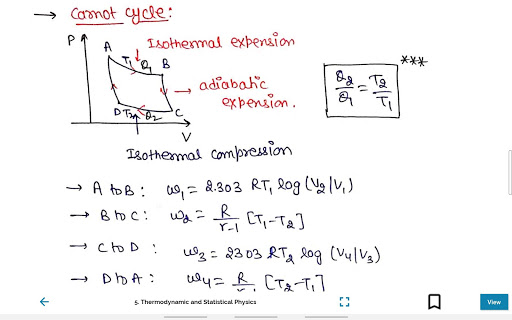 → Carnot cycle:
P
A
T₁ Q₁
B
Isothermal expension
→ adiabatic
expension.
D
T₂
Q₂
C
V
Q₂/Q₁ = T₂/T₁
***
Isothermal compression
→ A to B : ω₁ = 2.303 RT₁ log (V₂/V₁)
→ B to C : ω₂ = R/r-1 [T₁-T₂]
→ C to D : ω₃ = 2303 RT₂ log (V₄/V₃)
→ D to A : ω₄ = R/ [T₂-T₁]
5. Thermodynamic and Statistical Physics
View